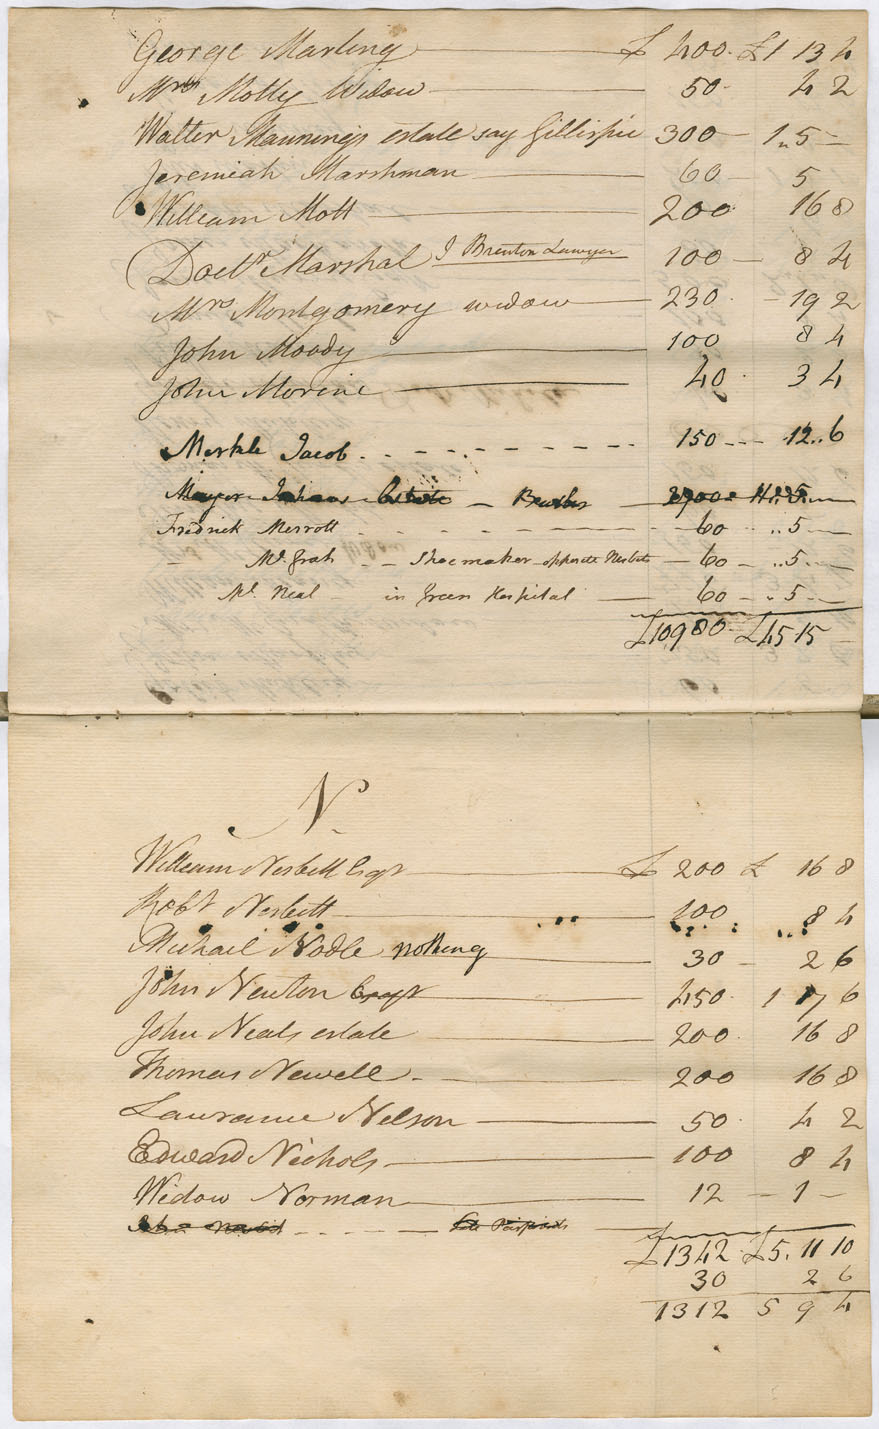 George Marling £ 400 £1 13 4
Mrs Molly Widow 50 4 2
Walter Mannings estate say Gillispie 300 1 5
Jeremiah Marshman 60 5
William Mott 200 16 8
Doctr Marshal J Brenton Lawyer 100 8 4
Mrs Montgomery widow 230 19 2
John Moody 100 8 4
John Morine 40 3 4
Merkle Jacob 150 12..6
Mayor Estate
Fredrick Merrott 60 ..5
Mc Grah Shoemaker opposite Nesbits 60 ..5
Mc Neal in Green Hospital 60 5
£10980 £45 15
N
William Nesbitt Esqr £ 200 £ 16 8
Robt Nesbitt 100 8 4
Michail Nodle nothing 30 2 6
John Newton Esqr 450 1 17 6
John Neals estate 200 16 8
Thomas Newell 200 16 8
Lawrance Nelson 50 4 2
Edward Nichols 100 8 4
Widow Norman 12 1
£1342 £5. 11 10
30 2 6
1312 5 9 4